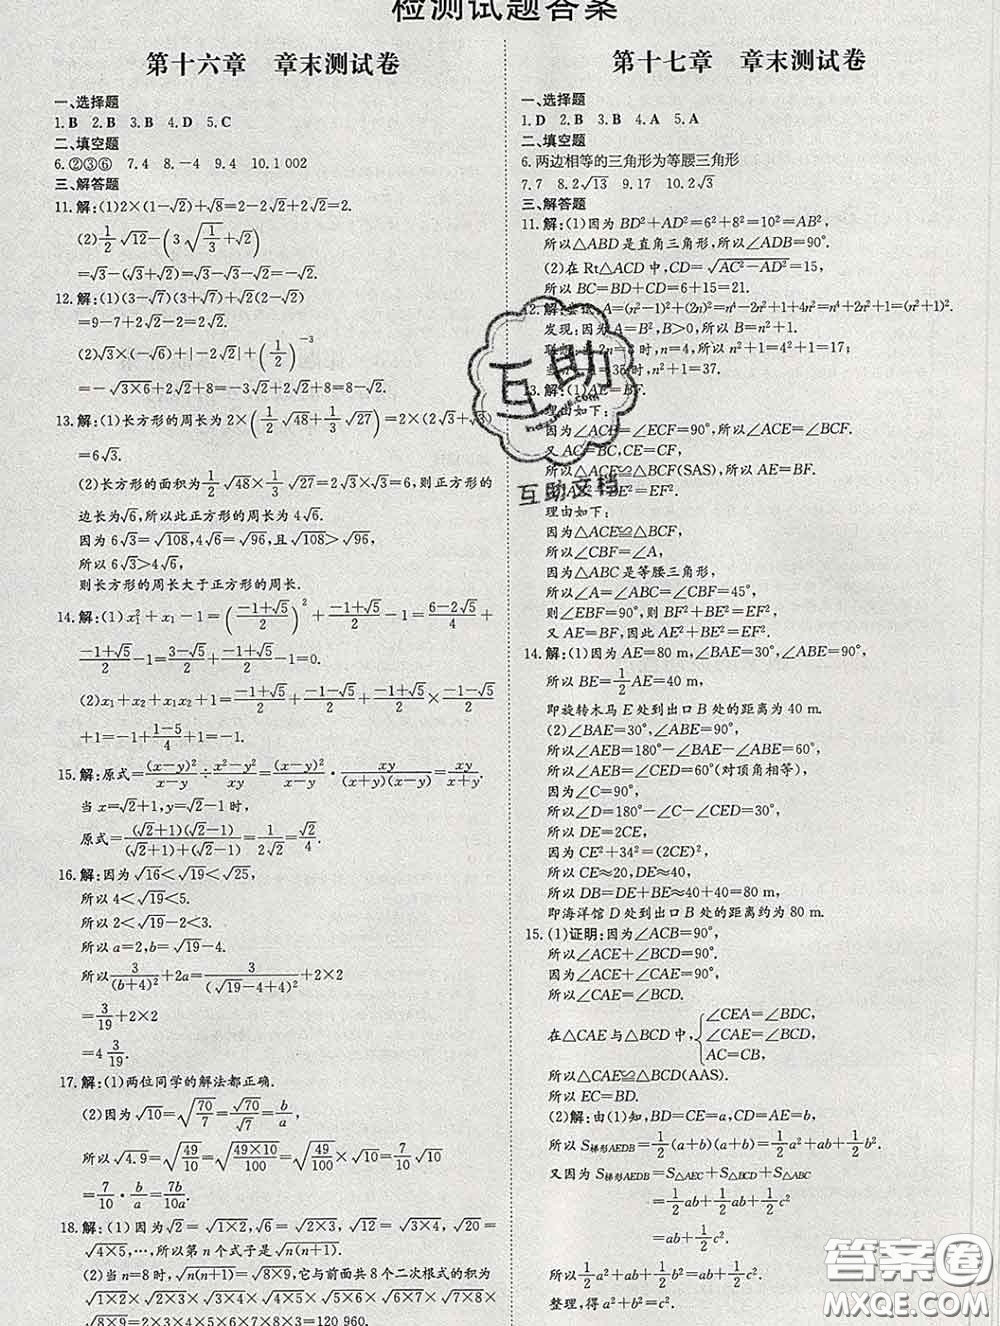 检测试题答案
第十六章　章末测试卷
一、选择题
1.B　2.B　3.B　4.D　5.C
二、填空题
6.②③⑥　7.4　8.－4　9.4　10.1 002
三、解答题
11.解:(1)2×(1－√2)＋√8＝2－2√2＋2√2＝2.
(2)1/2 √12－(3√(1/3)＋√2)
＝√3－(√3＋√2)＝√3－√3－√2＝－√2.
12.解:(1)(3－√7)(3＋√7)＋√2(2－√2)
＝9－7＋2√2－2＝2√2.
(2)√3×(－√6)＋|－2√2|＋(1/2)^(－3)
＝－√(3×6)＋2√2＋8＝－3√2＋2√2＋8＝8－√2.
13.解:(1)长方形的周长为 2×(1/2 √48＋1/3 √27)＝2×(2√3＋√3)
＝6√3.
(2)长方形的面积为 1/2 √48×1/3 √27＝2√3×√3＝6,则正方形的
边长为√6,所以此正方形的周长为 4√6.
因为 6√3＝√108,4√6＝√96,且√108＞√96,
所以 6√3＞4√6,
则长方形的周长大于正方形的周长.
14.解:(1)x₁²＋x₁－1＝((－1＋√5)/2)²＋(－1＋√5)/2－1＝(6－2√5)/4＋
(－1＋√5)/2－1＝(3－√5)/2＋(－1＋√5)/2－1＝0.
(2)x₁＋x₂＋x₁x₂＋1＝(－1＋√5)/2＋(－1－√5)/2＋(－1＋√5)/2×(－1－√5)/2
＋1＝－1＋(1－5)/4＋1＝－1.
15.解:原式＝(x－y)²/(x－y)÷(x²－y²)/xy＝(x－y)²/(x－y)·xy/((x＋y)(x－y))＝xy/(x＋y).
当 x＝√2＋1,y＝√2－1 时,
原式＝(√2＋1)(√2－1)/((√2＋1)＋(√2－1))＝1/(2√2)＝√2/4.
16.解:因为√16＜√19＜√25,
所以 4＜√19＜5.
所以 a＝2,b＝√19－4.
所以 3/(b＋4)²＋2a＝3/(√19－4＋4)²＋2×2
＝3/19＋2×2
＝4 3/19.
17.解:(1)两位同学的解法都正确.
(2)因为√10＝√(70/7)＝√70/√7＝b/a,
所以√4.9＝√(49/10)＝√(49×10/100)＝√(49/100)×√10＝7/10 √10
＝7/10·b/a＝7b/10a.
18.解:(1)因为√2＝√(1×2),√6＝√(2×3),√12＝√(3×4),√20＝
√(4×5),…,所以第 n 个式子是√(n(n＋1)).
(2)当 n＝8 时,√(n(n＋1))＝√(8×9),它与前面共 8 个二次根式的积为
√(1×2)×√(2×3)×√(3×4)×√(4×5)×√(5×6)×√(6×7)×√(7×8)×
√(8×9)＝1×2×3×4×5×6×7×8×3＝120 960.
第十七章　章末测试卷
一、选择题
1.D　2.B　3.B　4.A　5.A
二、填空题
6.两边相等的三角形为等腰三角形
7.7　8.2√13　9.17　10.2√3
三、解答题
11.解:(1)因为 BD²＋AD²＝6²＋8²＝10²＝AB²,
所以△ABD 是直角三角形,所以∠ADB＝90°.
(2)在 Rt△ACD 中,CD＝√(AC²－AD²)＝15,
所以 BC＝BD＋CD＝6＋15＝21.
12.解:尝试:A＝(n²－1)²＋(2n)²＝n⁴－2n²＋1＋4n²＝n⁴＋2n²＋1＝(n²＋1)².
发现:因为 A＝B²,B＞0,所以 B＝n²＋1.
2n＝8 时,n＝4,所以 n²＋1＝4²＋1＝17;
35 时,n²＋1＝37.
13.解:(1)AE＝BF.
理由如下:
因为∠ACB＝∠ECF＝90°,所以∠ACE＝∠BCF.
又 AC＝BC,CE＝CF,
所以△ACE≌△BCF(SAS),所以 AE＝BF.
BE²＝EF².
理由如下:
因为△ACE≌△BCF,
所以∠CBF＝∠A,
因为△ABC 是等腰三角形,
所以∠A＝∠ABC＝∠CBF＝45°,
则∠EBF＝90°,则 BF²＋BE²＝EF²,
又 AE＝BF,因此 AE²＋BE²＝EF².
14.解:(1)因为 AE＝80 m,∠BAE＝30°,∠ABE＝90°,
所以 BE＝1/2 AE＝40 m,
即旋转木马 E 处到出口 B 处的距离为 40 m.
(2)∠BAE＝30°,∠ABE＝90°,
所以∠AEB＝180°－∠BAE－∠ABE＝60°,
所以∠CED＝∠AEB＝60°(对顶角相等),
因为∠C＝90°,
所以∠D＝180°－∠C－∠CED＝30°,
所以 DE＝2CE,
因为 CE²＋34²＝(2CE)²,
所以 CE≈20,DE≈40,
所以 DB＝DE＋BE≈40＋40＝80(m),
即海洋馆 D 处到出口 B 处的距离约为 80 m.
15.(1)证明:因为∠ACB＝90°,
所以∠ACE＋∠BCD＝90°.
因为∠ACE＋∠CAE＝90°,
所以∠CAE＝∠BCD.
在△CAE 与△BCD 中,{∠CEA＝∠BDC,
∠CAE＝∠BCD,
AC＝CB,
所以△CAE≌△BCD(AAS).
所以 EC＝BD.
(2)解:由(1)知,BD＝CE＝a,CD＝AE＝b,
所以 S梯形AEDB＝1/2(a＋b)(a＋b)＝1/2 a²＋ab＋1/2 b².
又因为 S梯形AEDB＝S△AEC＋S△BCD＋S△ABC
＝1/2 ab＋1/2 ab＋1/2 c²
＝ab＋1/2 c².
所以 1/2 a²＋ab＋1/2 b²＝ab＋1/2 c².
整理,得 a²＋b²＝c².
互助
互助文档
答案圈
MXQE.COM